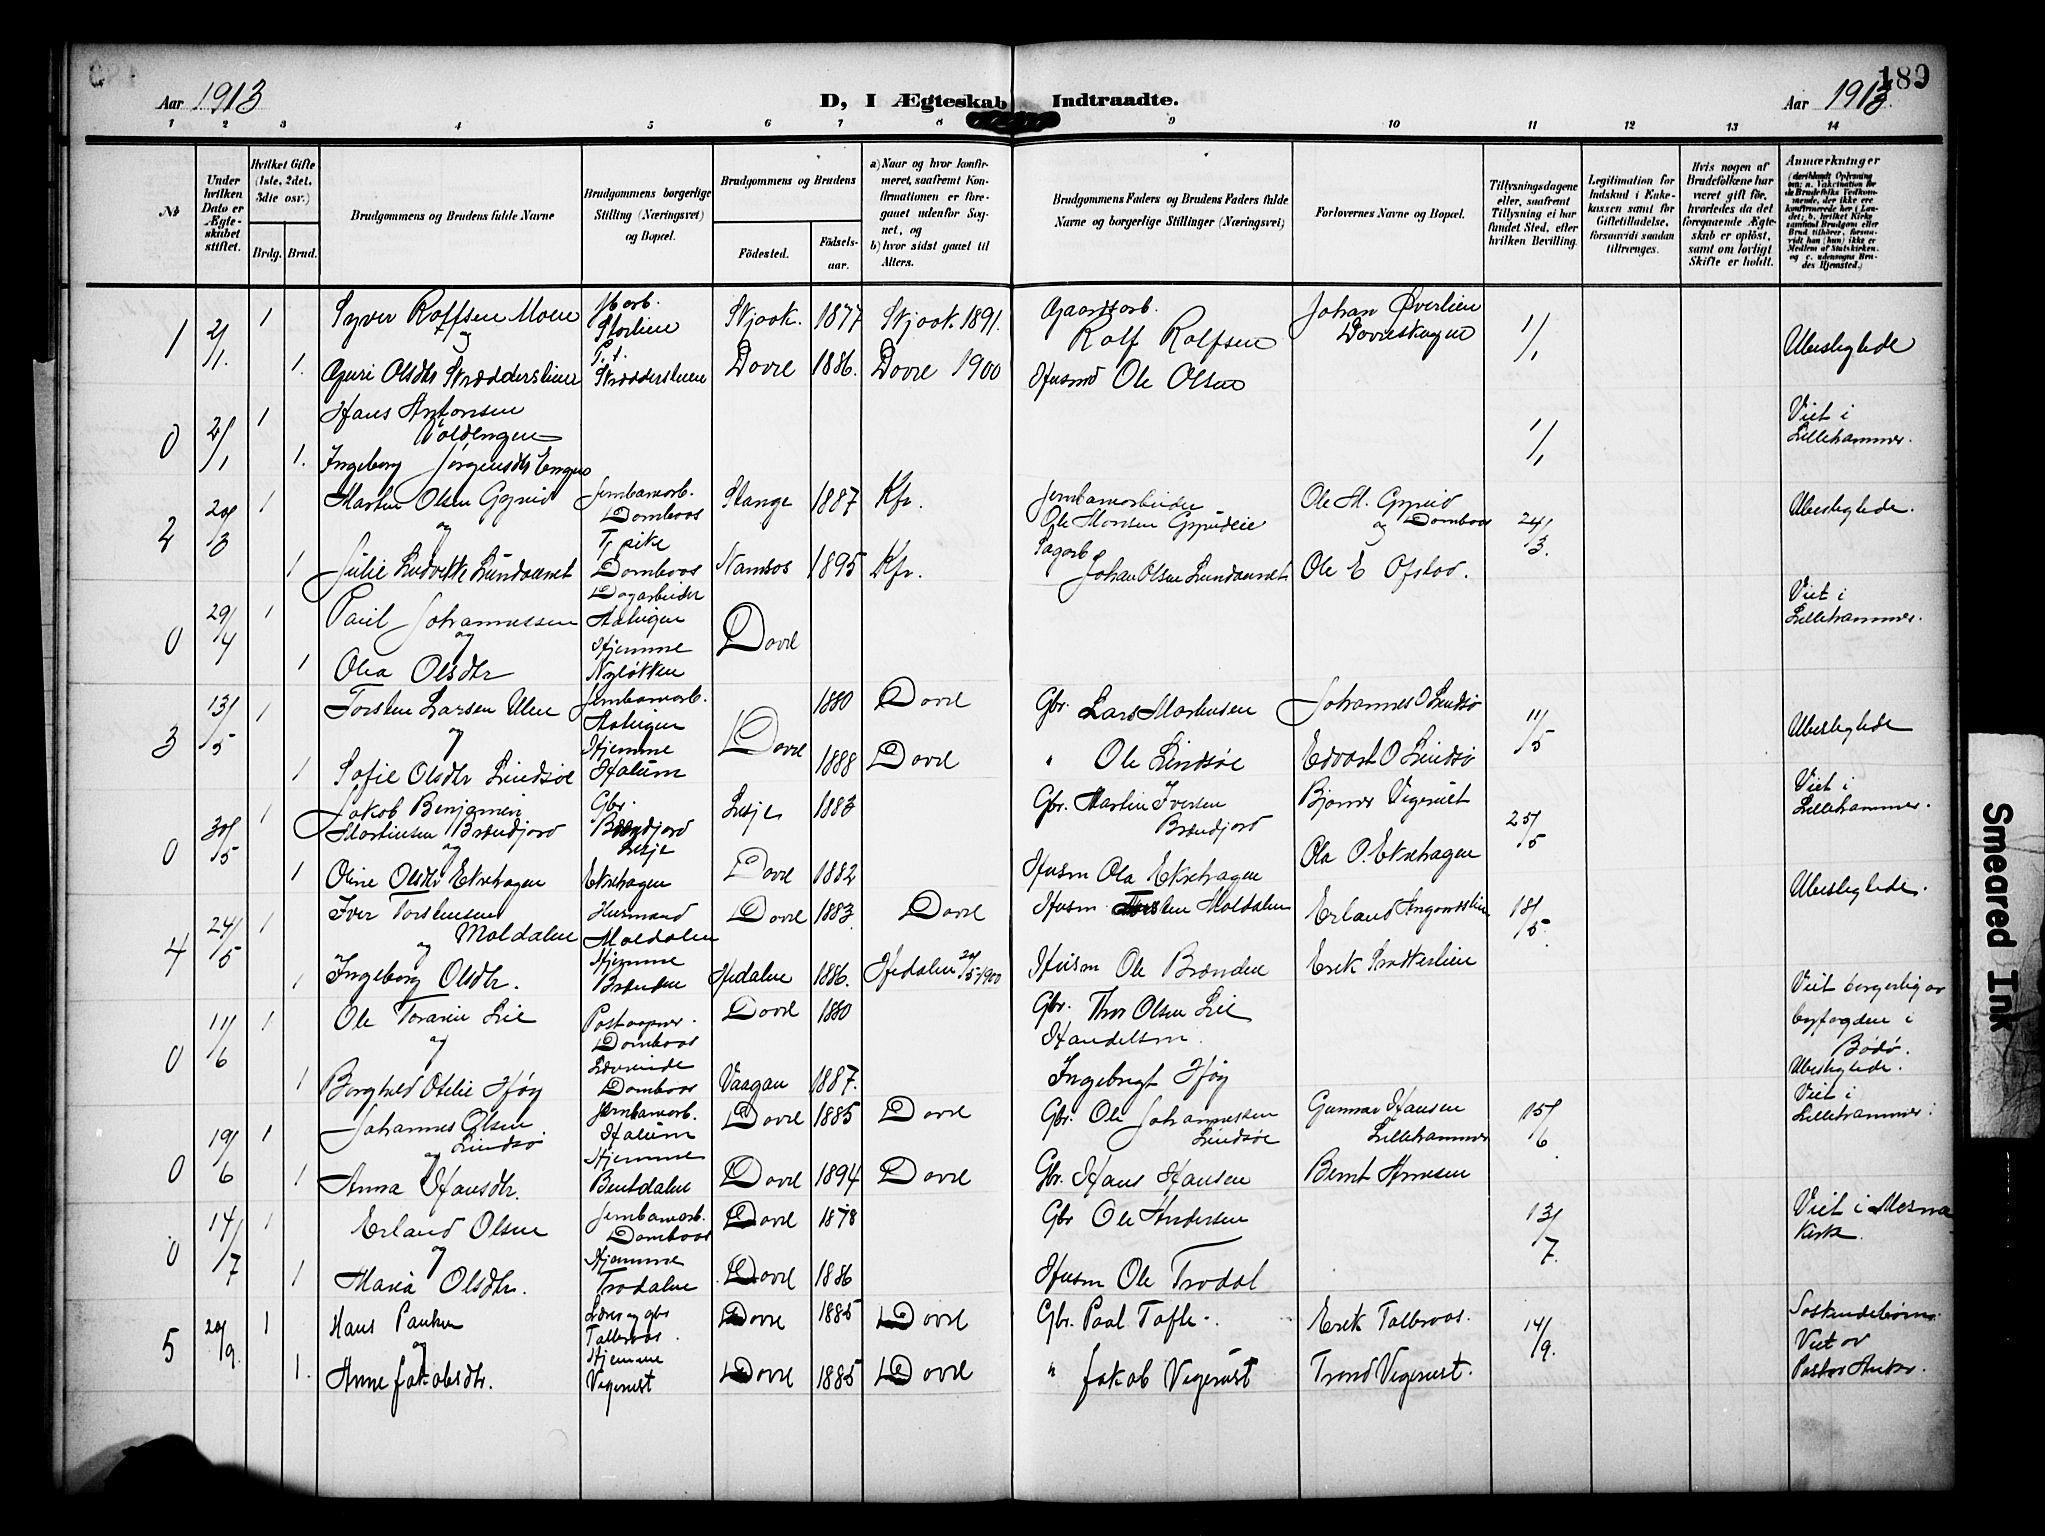 189
Aar 1913
D, I Ægteskab Indtraadte.
Aar 1913.
1 2 3 4 5 6 7 8 9 10 11 12 13 14
№
Under hvilken Dato er Ægteskabet stiftet.
Hvilket Gifte (1ste, 2det, 3die osv.)
Brdg. Brud.
Brudgommens og Brudens fulde Navne
Brudgommens borgerlige Stilling (Næringsvei) og Bopæl.
Brudgommens og Brudens
Fødested.
Fødselsaar.
a) Naar og hvor konfirmeret, saafremt Konfirmationen er foregaaet udenfor Sognet, og
b) hvor sidst gaaet til Alters.
Brudgommens Faders og Brudens Faders fulde Navne og borgerlige Stillinger (Næringsvei)
Forlovernes Navne og Bopæl.
Tillysningsdagene eller, saafremt Tillysning ei har fundet Sted, efter hvilken Bevilling.
Legitimation for Indskud i Enkekassen samt for Giftetilladelse, forsaavidt saadan tiltrænges.
Hvis nogen af Brudefolkene har været gift før, hvorledes da det foregaaende Ægteskab er opløst, samt om lovligt Skifte er holdt.
Anmærkninger
(deriblandt Oplysning om: a. Vakcination for de Brudefolks Vedkommende, der ikke ere konfirmerede her i Landet; b. hvilket Kirkesamfund Brudgom eller Brud tilhører, forsaavidt han (hun) ikke er Medlem af Statskirken, og c. udensogns Brudes Hjemsted.)
1 2/1. 1 Syver Rolfsen Moen Storlien Skjaak. 1877 Skjaak 1891. Gaardsarb. Rolf Rolfsen Johan Øverlien Dovreskogen 1/1 Ubeslegtede
og
1. Guri Olsdtr Skrædderslien Skrædderslien Dovre 1886. Dovre 1900 Husmd Ole Olsen
0 2/1 1 Hans Antonsen Voldengen 1/1 Viet i Lillehammer.
1. Ingeborg Jørgensdtr Engen
2 1 Martin Olsen Gyrud Jernbanearb. Dombaas Stange 1887 Kfr. Jernbanearbeider Ole Monsen Ole M. Gyrud og Dombaas 24/3. Ubeslegtede.
og
1 Julie Ludvikke Lundaunet T. pike Dombaas Namsos 1895 Kfr. Sagarb Johan Olsen Lundaunet Ole E Ofstad.
0 29/4 1 Paul Johannessen Dagarbeider Dovre Viet i Lillehammer.
og
1 Olea Olsdtr Hjemme Nyløkken
3 13/5 1 Torsten Larsen Ulen Jernbanearb. Dovre 1880 Dovre Gbr. Lars Mortensen Johannes O Lindsø 11/5 Ubeslegtede
og
1 Sofie Olsdtr Lindsøe Hjemme 1888 Dovre " Ole Lindsøe Edvart O Lindsø
0 30/5 1 Jakob Benjamin Martinsen Brændjord Gbr. Brændjord Lesje Lesje 1883 Gbr. Martin Iversen Brændjord Bjarne Vigerust 25/5 Viet i Lillehammer.
og
1 Oline Olsdtr Ekrehagen Ekrehagen Dovre 1882 Husm Ola Ekrehagen Ola O. Ekrehagen
4 24/5 1 Iver Torstensen Moldalen Husmand Moldalen Dovre 1883. Dovre Husm. Torsten Moldalen Erland 18/5. Ubeslegtede.
og
1 Ingeborg Olsdtr. Hjemme Brænden Hedalen 1886. Hedalen 20/5 1900 Husm Ole Brænden Erik
0 11/6 1 Ole Lie Postaapner. Dombaas Dovre 1880 Gbr. Thor Olsen Lie Viet borgerlig av byfogden i Bodø. Ubeslegtede.
og
1 Borghild Otelie Høy Lærerinde Dombaas Vaagan 1887. Handelsm. Ingebrigt Høy
0 19/6 1 Johannes Olsen Lindsø Jernbanearb. Dovre 1885 Dovre Gbr. Ole Johannessen Lindsøe Gunnar Hansen Lillehammer 15/6 Viet i Lillehammer.
og
1 Anna Hansdtr. Hjemme Bentdalen Dovre 1894 Dovre Gbr. Hans Hansen Bernt Arnesen
0 14/7 1 Erland Olsen Jernbanearb. Dombaas Dovre 1878 Gbr Ole Andersen 13/7. Viet i Mesna Kirke.
og
1 Maria Olsdtr. Hjemme Trodalen Dovre 1886 Husm Ole Trodal
5 20/9. 1 Hans Paulsen Lærer og gbr Talleraas. Dovre 1885 Dovre Gbr. Paal Tofte. Erik Talleraas. 14/9. Søskendebørn. Viet av Pastor Anker.
og
1. Anne Jakobsdtr. Hjemme Vigerust Dovre 1885 Dovre " Jakob Vigerust Trond Vigerust.
Smeared Ink